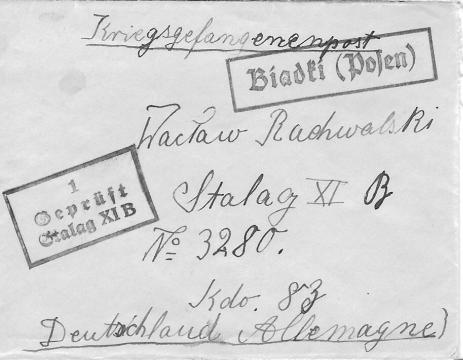 Kriegsgefangenenpost
Biadki (Posen)
Wacław Rachwalski
1
Geprüft
Stalag XI B
Stalag XI B
№ 3280.
Kdo. 83
Deutschland Allemagne)